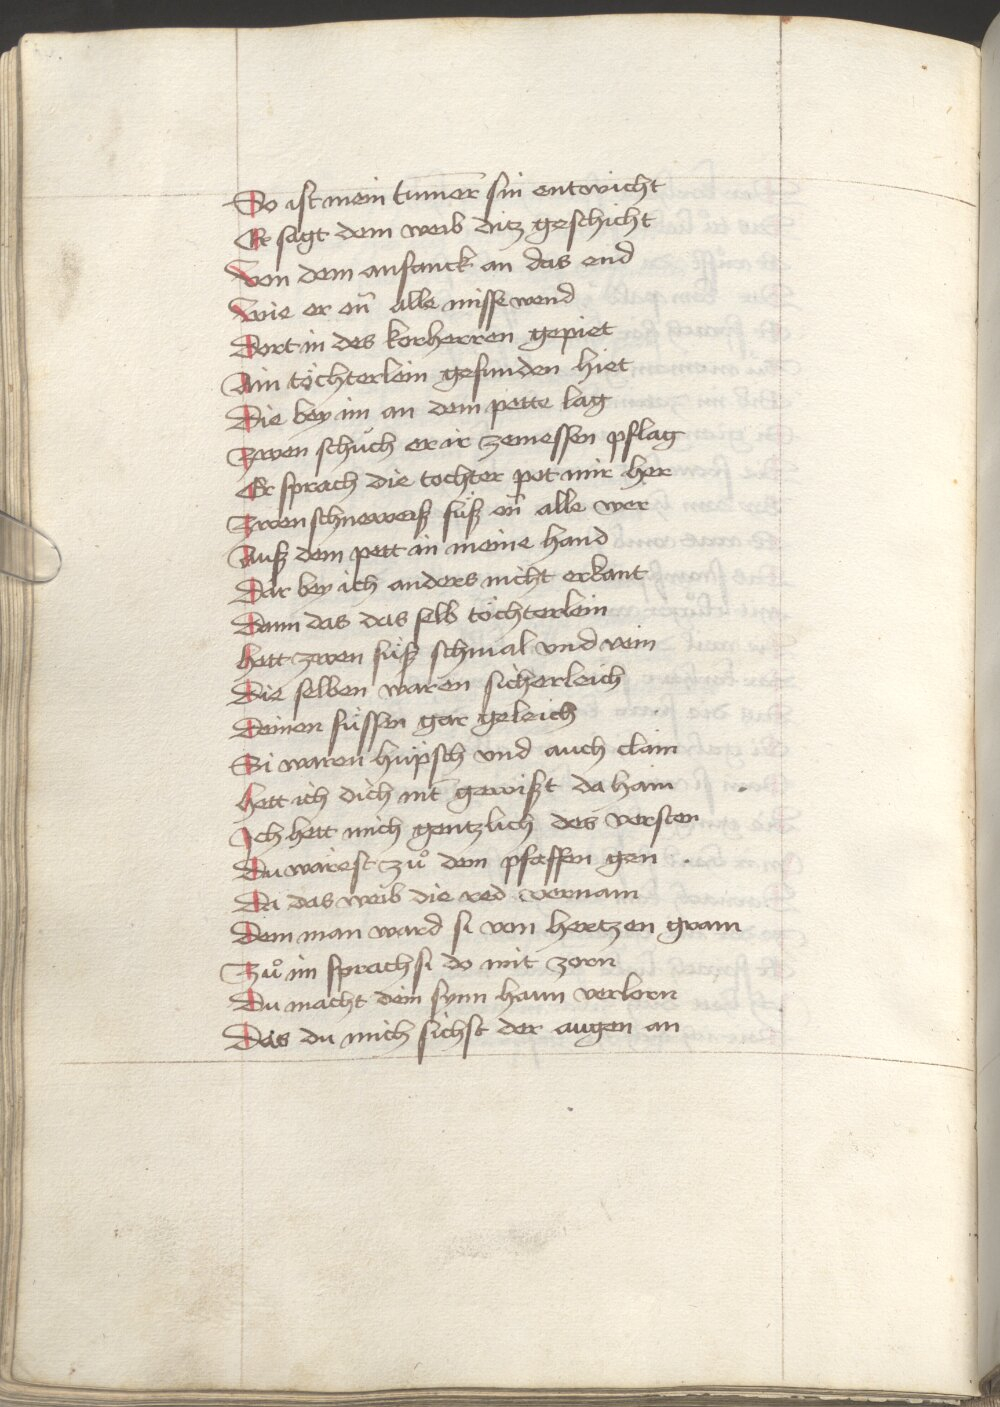 So ist mein tumer sin entwicht
Er sagt dem weib ditz geschicht
Von dem anfanck an das end
Wie er on alle missewend
Dort in des korherren gepiet
Ain töchterlein gefunden hiet
Die bey im an dem pette lag
Zwen schuch er ir zemessen pflag
Er sprach die tochter pot mir her
Zwen schneweiß füß on alle wer
Auß dem pett in meine hand
Dar bey ich anders nicht erkant
Dann das das selb töchterlein
hett zwen füß schmal vnd vein
Die selben waren sicherleich
Deinen füssen gar geleich
Si waren hüpsch vnd auch clain
hett ich dich nit gewißt da haim
Ich hett mich gentzlich des versten
Du wärest zů dem pfaffen gen
Da das weib die red vernam
Dem man ward si von hertzen gram
Zů im sprach si do mit zorn
Du macht dein synn haim verlorn
Das du mich sichst der augen an